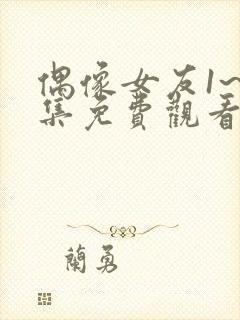 偶像女友1~
集免費觀看
蘭勇